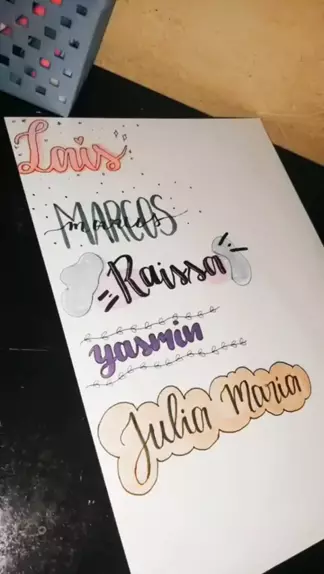 Lais
MARCOS
marcos
Raissa
yasmin
Julia Maria